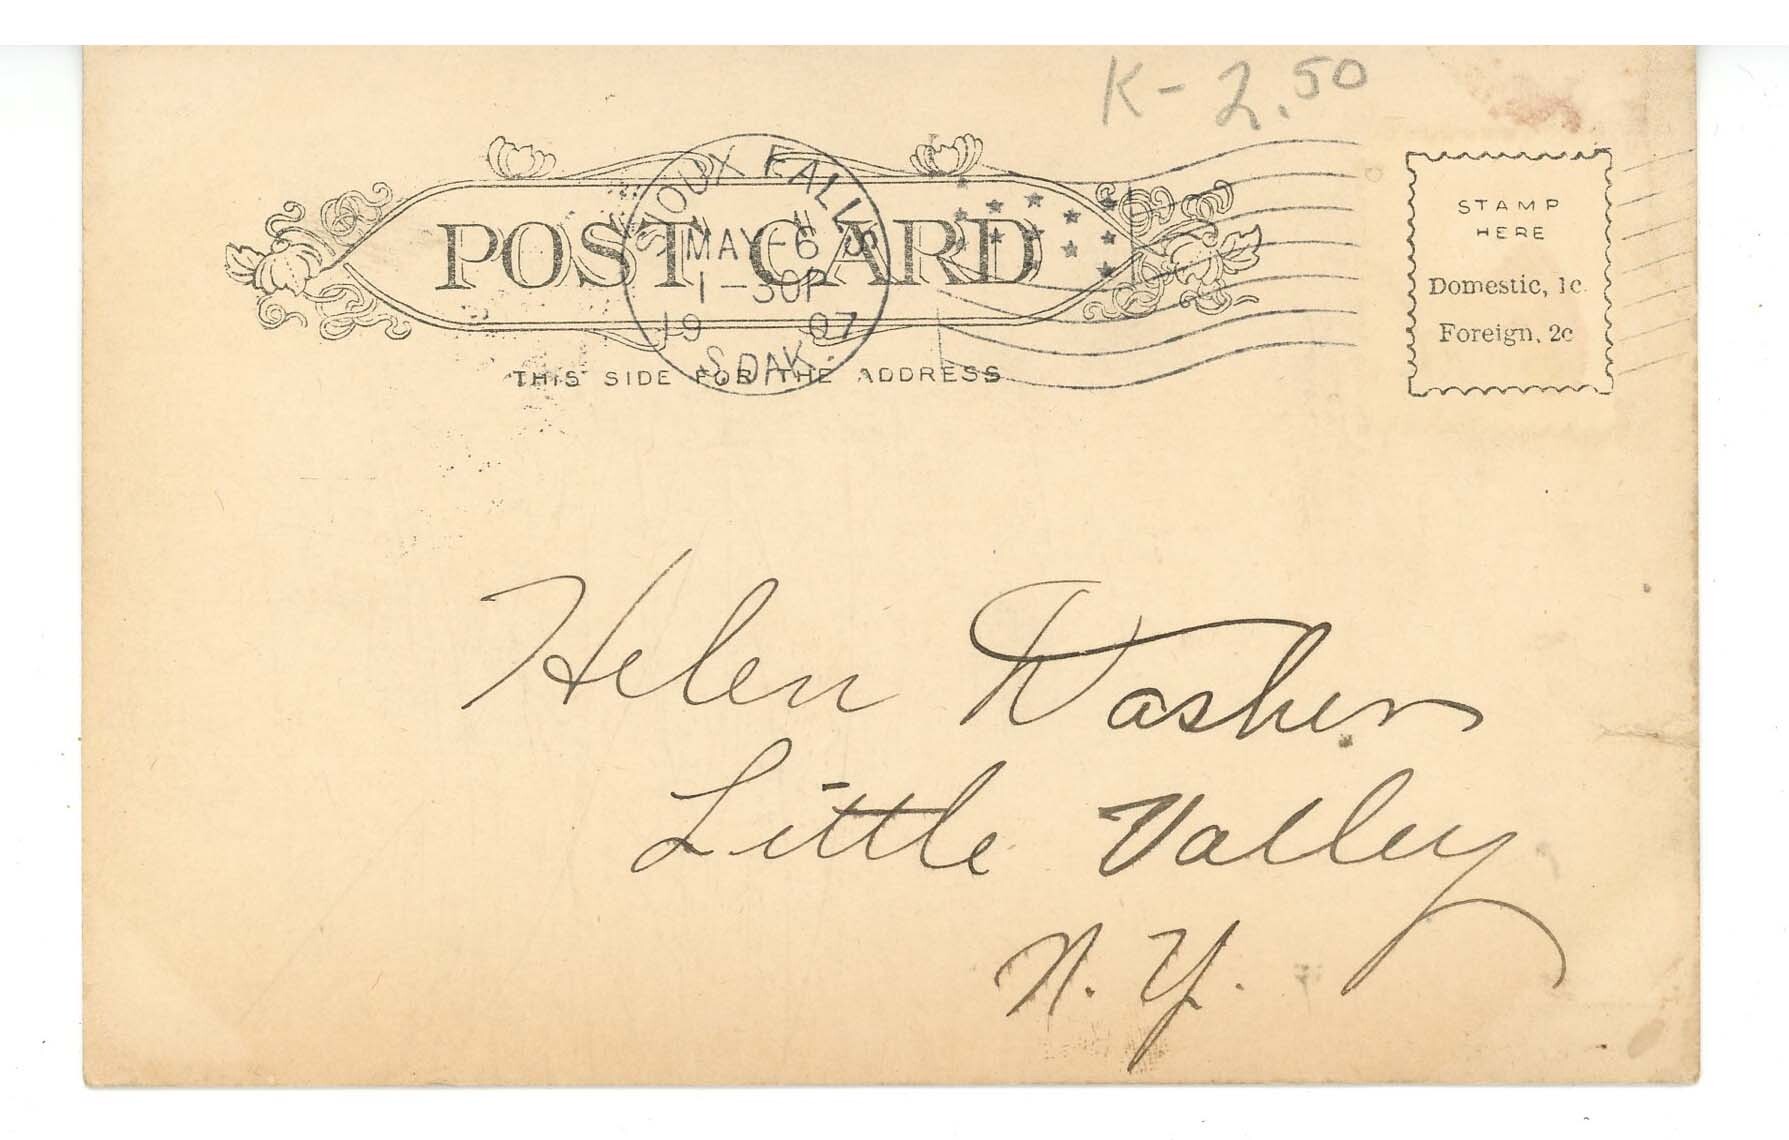 K-2.50
SIOUX FALLS
MAY-6
1-30P
1907
S.DAK.
POST CARD
THIS SIDE FOR THE ADDRESS
STAMP
HERE
Domestic, 1c
Foreign, 2c
Helen
Little Valley
N. Y.